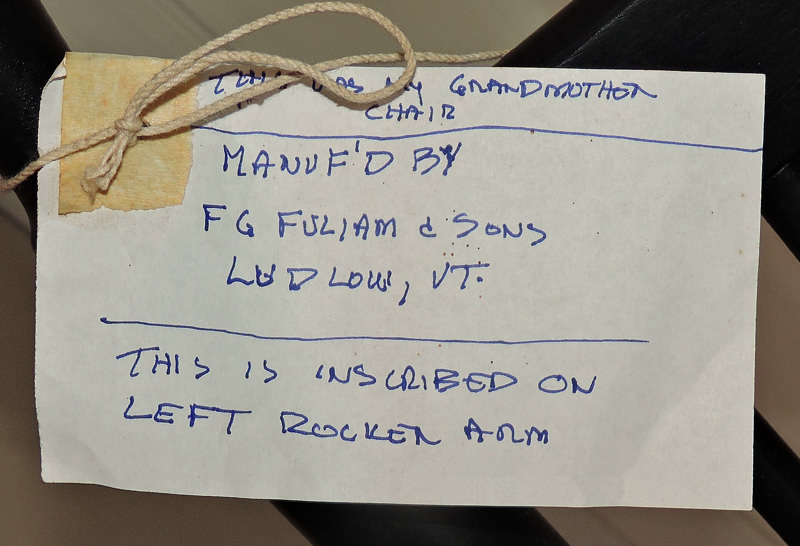 THIS WAS MY GRANDMOTHER
CHAIR
MANUF'D BY
FG FULIAM & SONS
LUDLOW, VT.
THIS IS INSCRIBED ON
LEFT ROCKER ARM